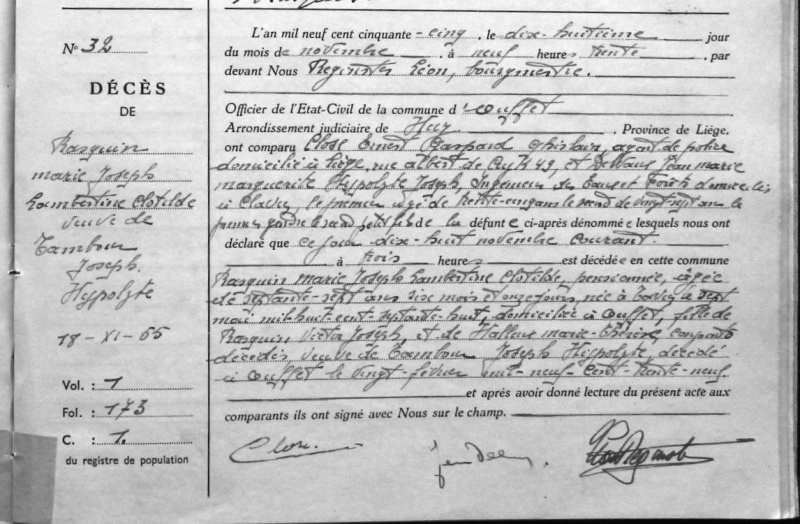 N° 32
DÉCÈS
DE
Rasquin
Marie Joseph
Lambertine Clotilde
veuve de
Tambour
Joseph
Hypolyte
18-XI-55
Vol. : 1
Fol. : 173
C. : 1.
du registre de population
L'an mil neuf cent cinquante-cinq, le dix-huitième jour
du mois de novembre, à neuf heures trente, par
devant Nous Léon, bourgmestre.
Officier de l'Etat-Civil de la commune d' Ouffet
Arrondissement judiciaire de Huy, Province de Liége.
ont comparu Close Ernest Gaspard Ghislain, agent de police
domicilié à Liége, rue Albert de Cuyck 49, et Jean Marie
Marguerite Hypolyte Joseph, Ingénieur des Eaux et Forêts domicilié
à Clavier, le premier agé de trente-cinq ans le second de vingt-sept ans le
premier gendre le second petit fils de la défunte ci-après dénommée lesquels nous ont
déclaré que ce jour dix-huit novembre courant.
à trois heures est décédée en cette commune
Rasquin Marie Joseph Lambertine Clotilde, pensionnée, agée
de septante-sept ans six mois et onze jours, née à le sept
mai mil huit cent septante-huit, domiciliée à Ouffet, fille de
Rasquin Victor Joseph, et de Marie-Thérèse, conjoints
décédés, veuve de Tambour Joseph Hippolyte, décédé
à Ouffet le vingt février mil-neuf-cent-trente-neuf
et après avoir donné lecture du présent acte aux
comparants ils ont signé avec Nous sur le champ.
Close